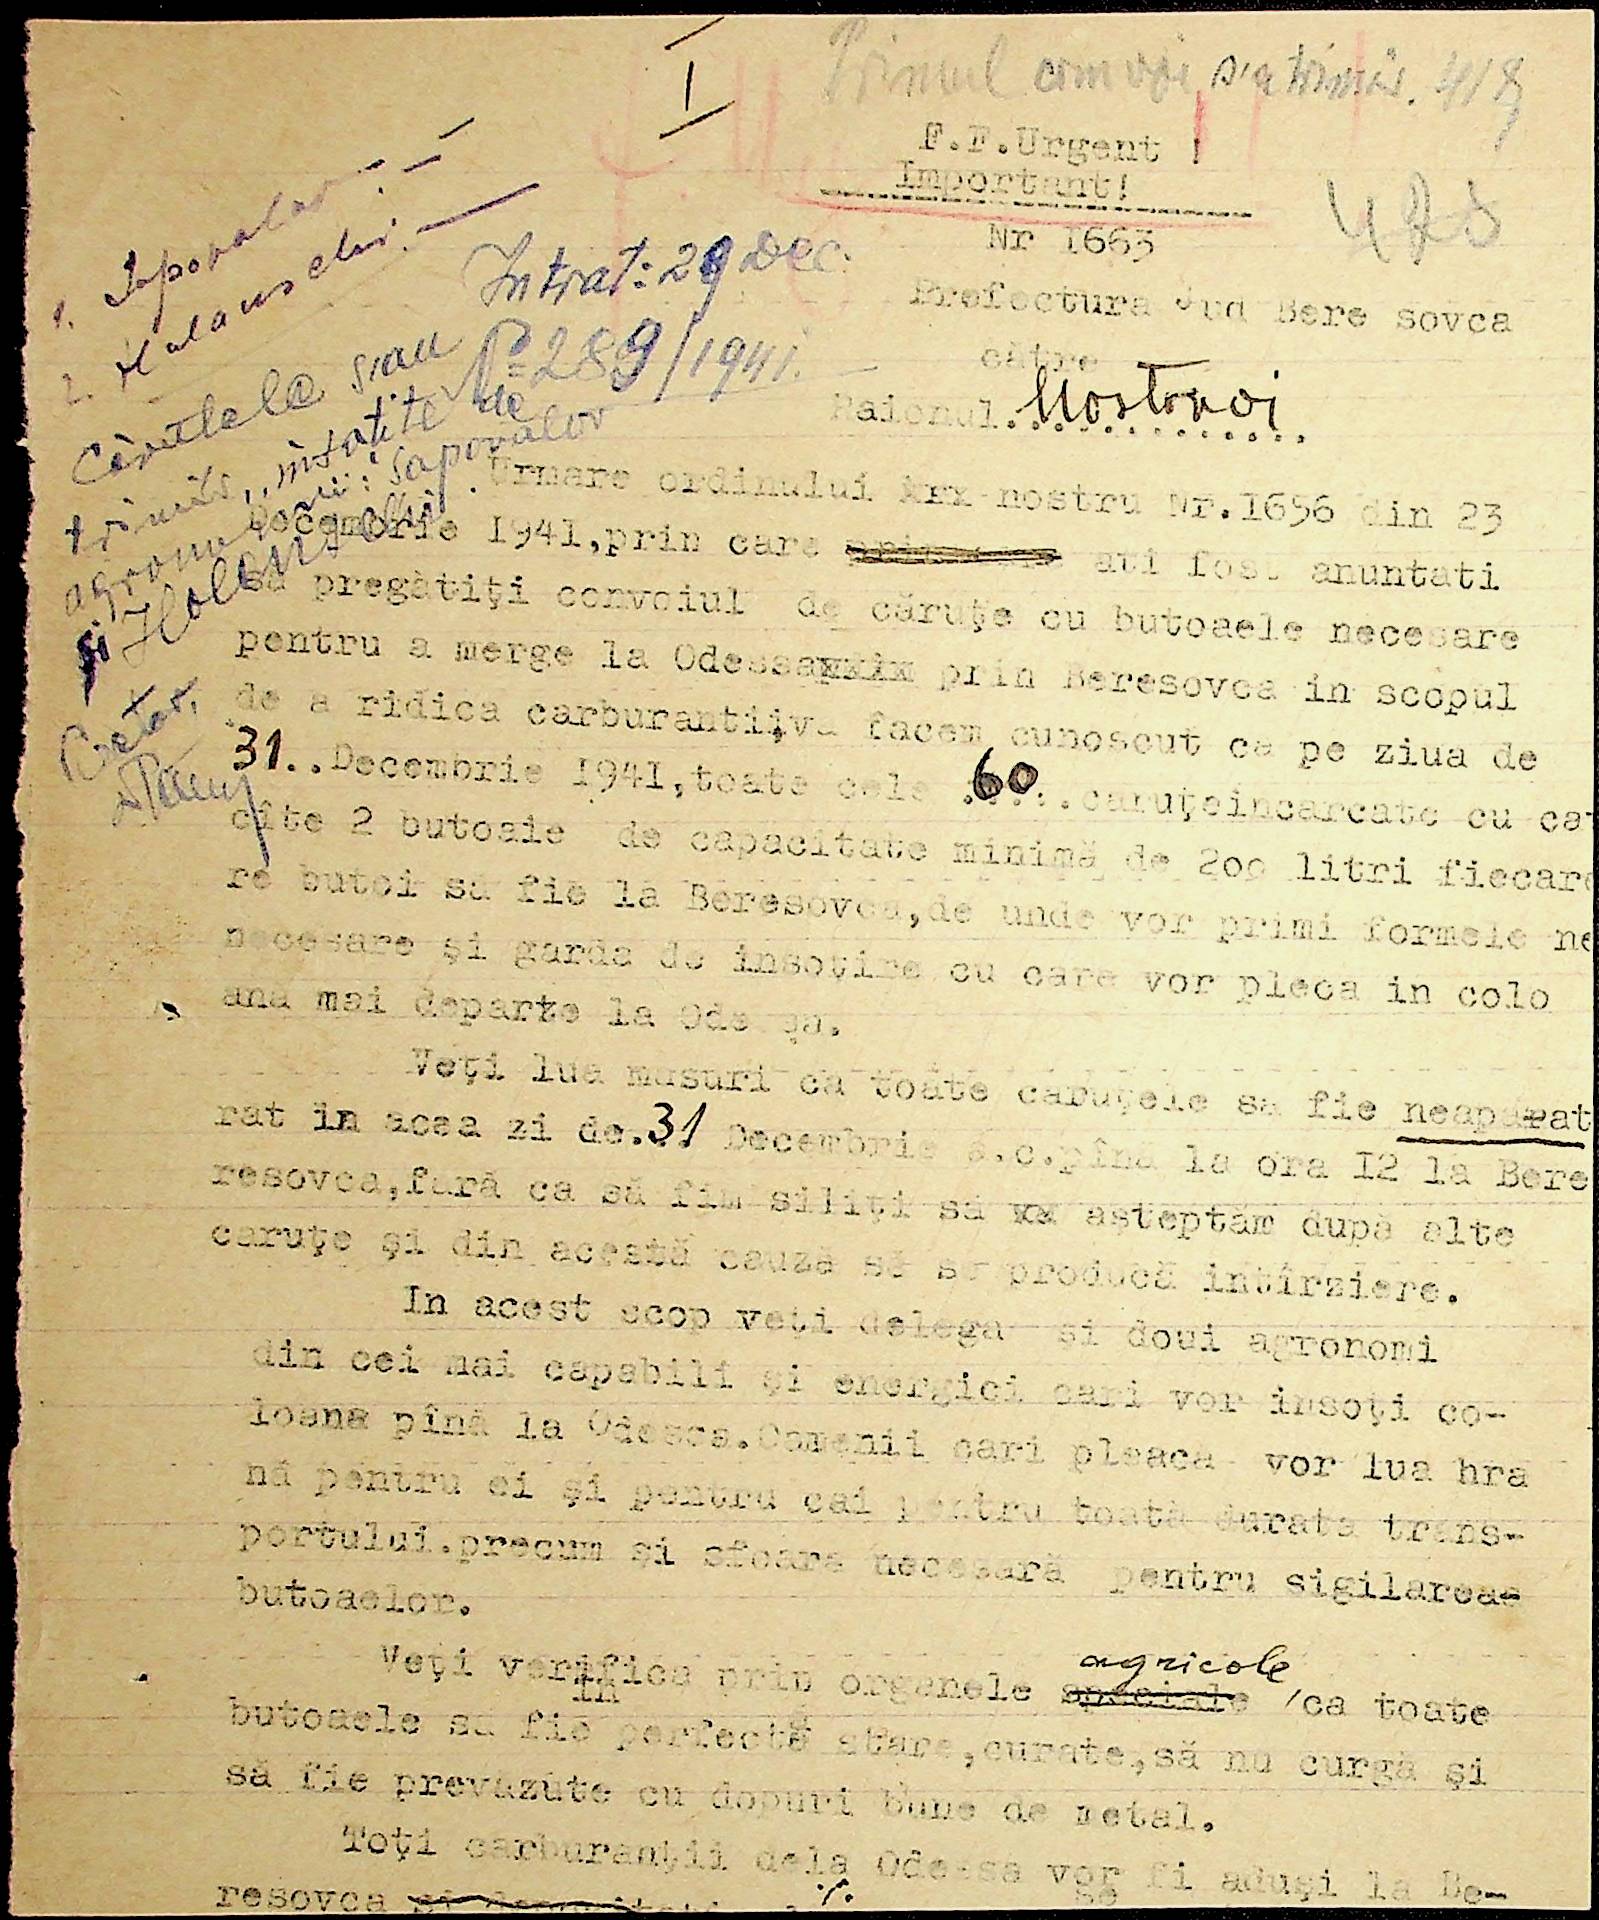 I
Primul convoi s'a trimis.
F.F.Urgent !
Important!
428
Nr 1663
1. Saporalov
2. Halanschi.
Intrat: 29 Dec.
№ 289/1941.
Prefectura Jud Bere sovca
către
Raionul. Mostovoi
Căruțele s'au
trimis, însoțite de
agronomii: Saporalov
și
Urmare ordinului nostru Nr.1656 din 23
Decembrie 1941,prin care ati fost anuntati
să pregătiţi convoiul de căruţe cu butoaele necesare
pentru a merge la Odessa prin Beresovca in scopul
de a ridica carburantii,va facem cunoscut ca pe ziua de
31..Decembrie 1941,toate cele 60 caruţeincarcate cu ca
cîte 2 butoaie de capacitate minimă de 200 litri fiecare
re butoi să fie la Beresovca,de unde vor primi formele ne
necesare şi garda de insoţire cu care vor pleca in colo
ana mai departe la Ode sa.
Veţi lua masuri ca toate caruţele sa fie neaparat
rat in acea zi de.31 Decembrie a.c.pîna la ora I2 la Bere
resovca,fară ca să fim siliţi să aşteptăm după alte
caruţe şi din acestă cauză să se producă intîrziere.
In acest scop veţi delega şi doui agronomi
din cei mai capabili şi energici cari vor insoţi co-
loana pînă la Odessa.Oamenii cari pleacă vor lua hra
nă pentru ei şi pentru cai pentru toată durata trans-
portului.precum şi sfoara necesară pentru sigilarea
butoaelor.
Veţi verifica prin organele speciale agricole ca toate
butoaele să fie in perfectă stare,curate,să nu curgă şi
să fie prevăzute cu dopuri bune de metal.
Toţi carburanţii dela Odessa vor fi aduşi la Be-
resovca
./.
se